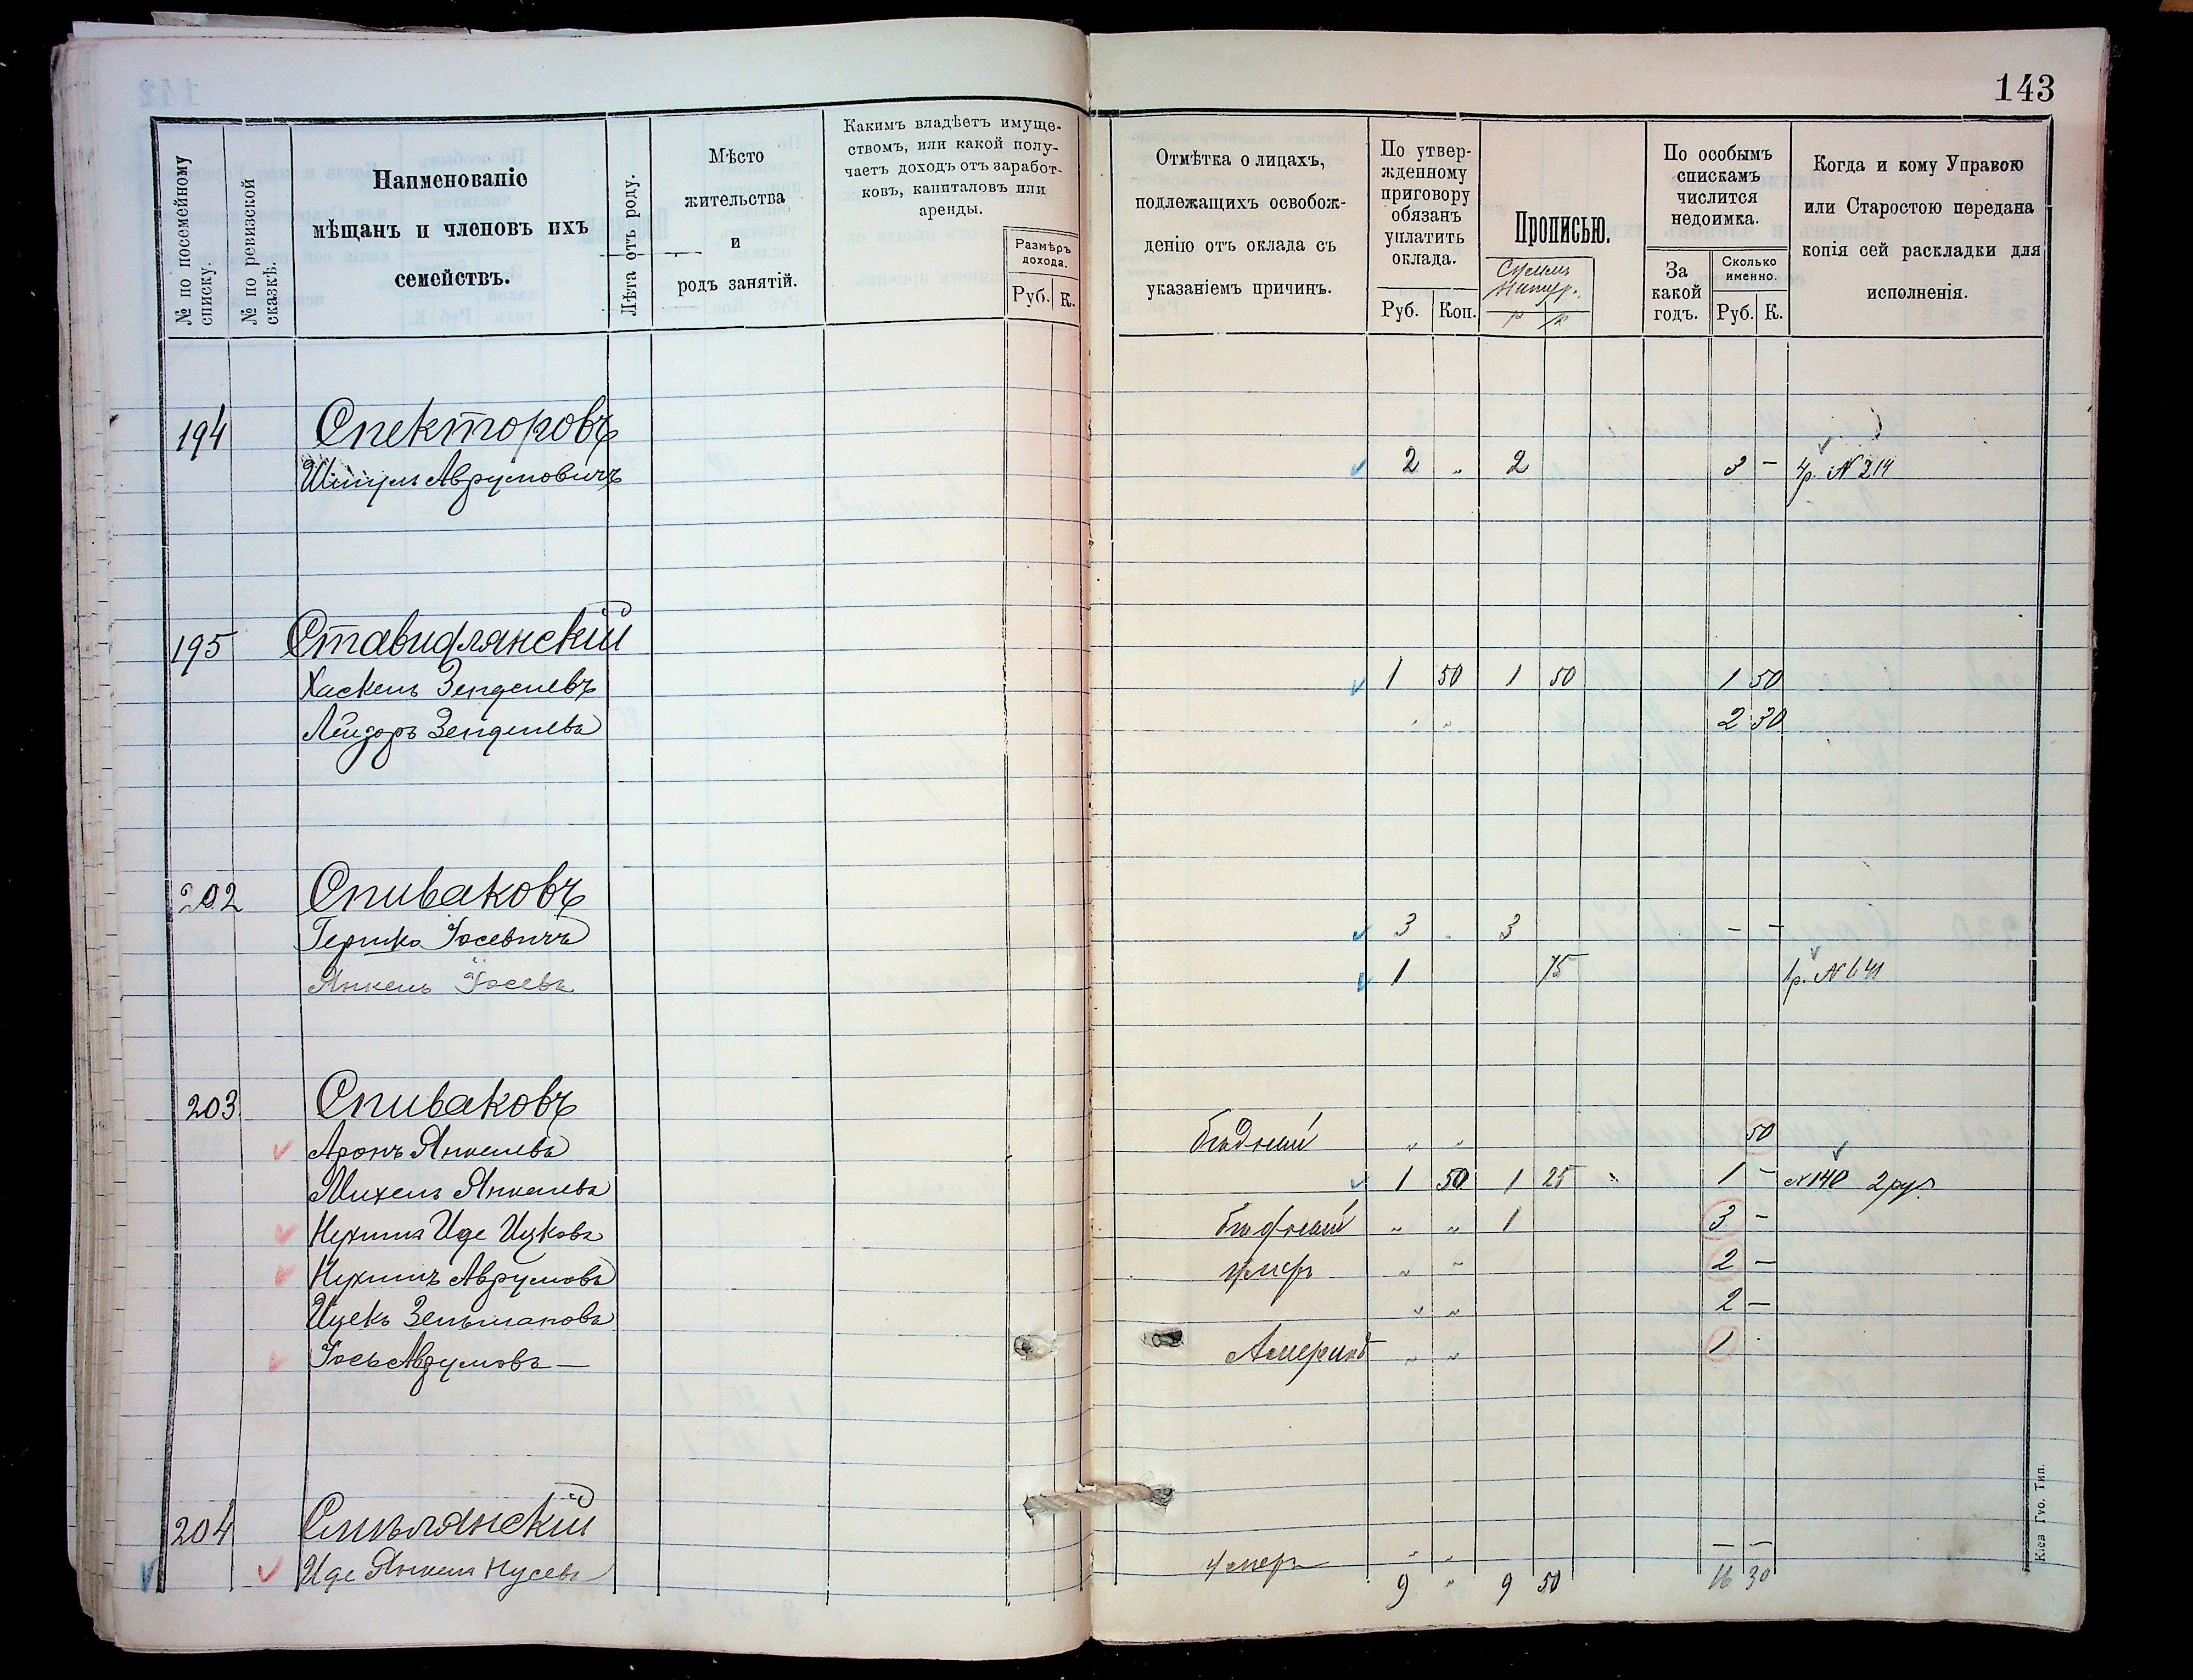 143
№ по посемейному списку.
№ по ревизской сказкѣ.
Наименованіе
мѣщанъ и членовъ ихъ
семействъ.
Лѣта отъ роду.
Мѣсто
жительства
и
родъ занятій.
Какимъ владѣетъ имуще-
ствомъ, или какой полу-
чаетъ доходъ отъ заработ-
ковъ, капиталовъ или
аренды.
Размѣръ
дохода.
Руб. К.
Отмѣтка о лицахъ,
подлежащихъ освобож-
денію отъ оклада съ
указаніемъ причинъ.
По утвер-
жденному
приговору
обязанъ
уплатить
оклада.
Руб. Коп.
Прописью.
р к
По особымъ
спискамъ
числится
недоимка.
За
какой
годъ.
Сколько
именно.
Руб. К.
Когда и кому Управою
или Старостою передана
копія сей раскладки для
исполненія.
194 Спекторовъ
Шмуль Аврумовичъ 2 " 2 3 —
195 Ставидлянскій
Хаскель Зенделевъ 1 50 1 50 1 50
Лейзоръ Зенделевъ " " 2 30
202 Спиваковъ
Гершко Іосевичъ 3 " 3 — —
Янкель Іосевъ 1 75 1р. №641
203 Спиваковъ
Аронъ Янкелевъ бѣдный " " 50
Михель Янкелевъ 1 50 1 25 1 — №140 2 руб
Нухимъ Иде Ицковъ бѣдный " " 1 3 —
Нухимъ Аврумовъ умеръ " " 2 —
Ицекъ Зельмановъ " " 2 —
Іось Аврумовъ — Америкѣ " " 1
204 Смѣлянскій
Иде Янкель Нусевъ умеръ " " — —
9 " 9 50 16 30
Кіев Губ. Тип.